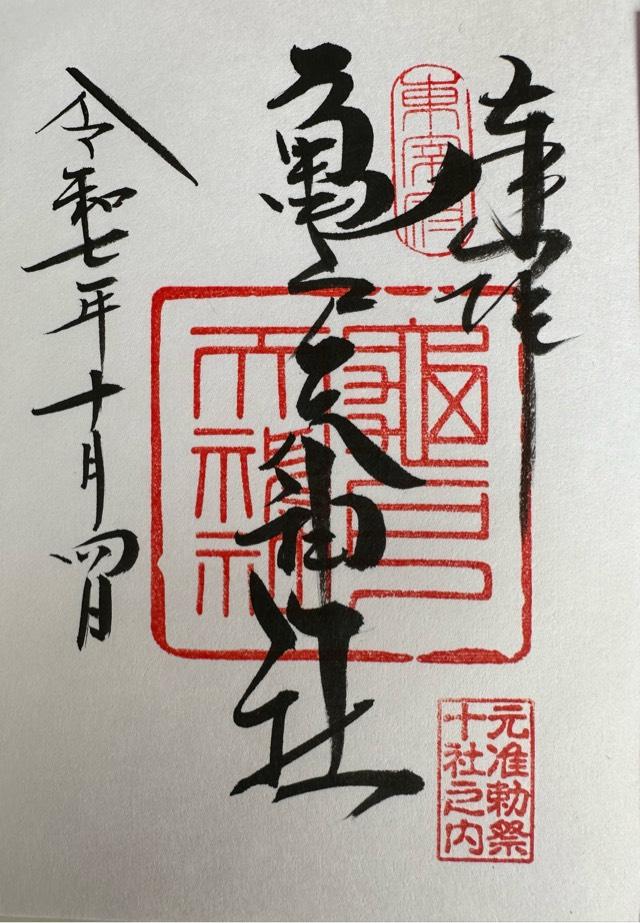 奉拝
東宰府
亀戸天神社
亀戸
天神社
元准勅祭
十社之内
令和七年十月四日